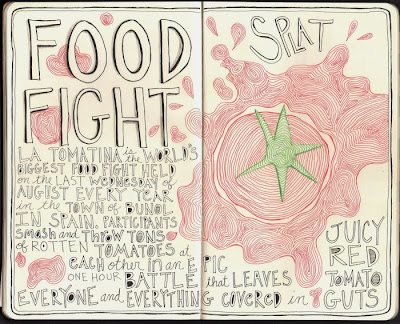 FOOD
FIGHT
LA TOMATINA is the WORLD'S
BIGGEST FOOD FIGHT HELD
on the LAST WEDNESDAY of
AUGUST EVERY YEAR
in the TOWN of BUNOL
IN SPAIN. PARTICIPANTS
SMASH and THROW TONS
OF ROTTEN TOMATOES at
EACH OTHER IN AN EPIC
ONE HOUR BATTLE that LEAVES
EVERYONE and EVERYTHING COVERED in
SPLAT
JUICY
RED
TOMATO
GUTS